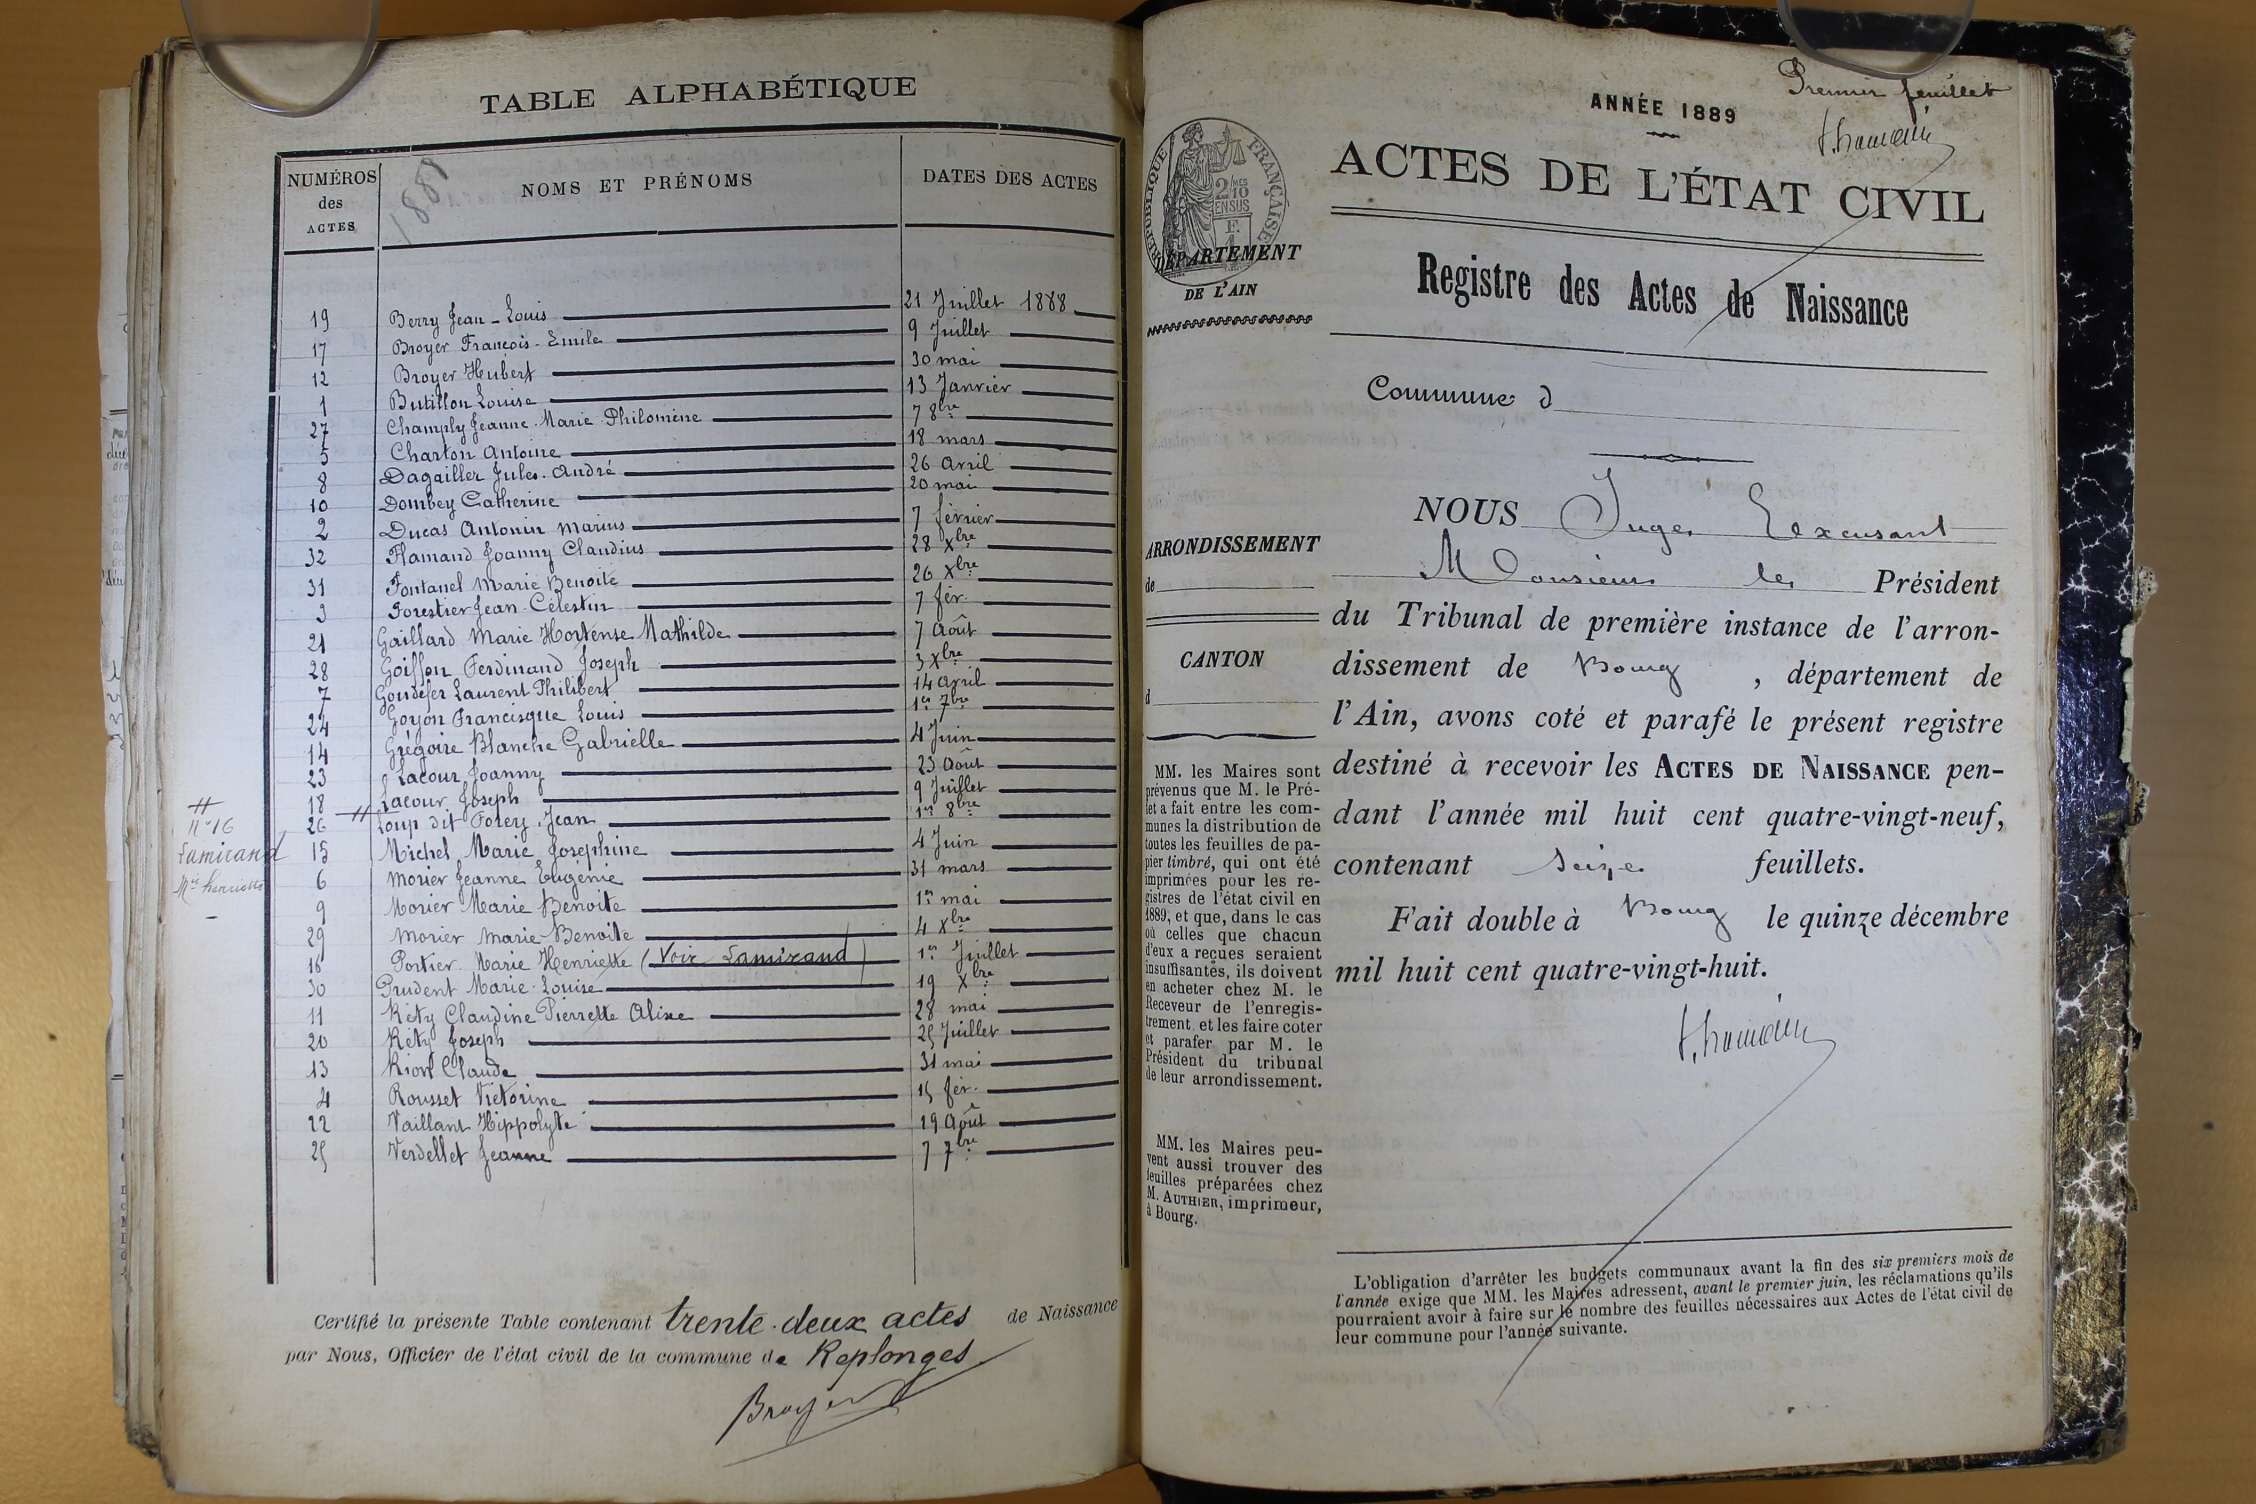 TABLE ALPHABÉTIQUE
NUMÉROS des ACTES
1888
NOMS ET PRÉNOMS
DATES DES ACTES
19 Berry Jean-Louis 21 Juillet 1888
17 Broyer François-Emile 9 Juillet
12 Broyer Hubert 30 mai
1 Butillon Louise 13 Janvier
27 Champly Jeanne-Marie-Philomène 7 8bre
5 Charton Antoine 18 mars
8 Dagailler Jules-André 26 avril
10 Dombey Catherine 20 mai
2 Ducas Antonin Marius 7 février
32 Flamand Joanny Claudius 28 Xbre
31 Fontanel Marie Benoite 26 Xbre
3 Forestier Jean-Célestin 7 fév.
21 Gaillard Marie Hortense Mathilde 7 Août
28 Goiffon Ferdinand Joseph 3 Xbre
7 Gondefer Laurent Philibert 14 avril
24 Goyon Francisque Louis 1er 7bre
14 Grégoire Blanche Gabrielle 4 Juin
23 Lacour Joanny 23 Août
18 Lacour Joseph 9 Juillet
26 Loup dit Forey Jean 1er 8bre
15 Michel Marie Josephine 4 Juin
6 Morier Jeanne Eugénie 31 mars
9 Morier Marie Benoite 1er mai
29 Morier Marie Benoite 4 Xbre
16 Portier Marie Henriette (Voir Lamirand) 1er Juillet
30 Prudent Marie-Louise 19 Xbre
11 Réty Claudine Pierrette Alixe 28 mai
20 Réty Joseph 25 Juillet
13 Riont Claude 31 mai
4 Rousset Victorine 15 fév.
22 Vaillant Hippolyte 19 Août
25 Verdellet Jeanne 7 7bre
#
N°16
Lamirand
Mie henriette
Certifié la présente Table contenant trente-deux actes de Naissance
par Nous, Officier de l'état civil de la commune de Replonges
Broyer
Premier feuillet
ANNÉE 1889
ACTES DE L'ÉTAT CIVIL
RÉPUBLIQUE FRANÇAISE
2/10 MES
EN SUS
F.
1
DÉPARTEMENT
DE L'AIN
Registre des Actes de Naissance
Commune d
ARRONDISSEMENT
de
CANTON
d
MM. les Maires sont
prévenus que M. le Pré-
fet a fait entre les com-
munes la distribution de
toutes les feuilles de pa-
pier timbré, qui ont été
imprimées pour les re-
gistres de l'état civil en
1889, et que, dans le cas
où celles que chacun
d'eux a reçues seraient
insuffisantes, ils doivent
en acheter chez M. le
Receveur de l'enregis-
trement et les faire coter
et parafer par M. le
Président du tribunal
de leur arrondissement.
MM. les Maires peu-
vent aussi trouver des
feuilles préparées chez
M. AUTHIER, imprimeur,
à Bourg.
NOUS Juge Excusant
Monsieur le Président
du Tribunal de première instance de l'arron-
dissement de Bourg, département de
l'Ain, avons coté et parafé le présent registre
destiné à recevoir les ACTES DE NAISSANCE pen-
dant l'année mil huit cent quatre-vingt-neuf,
contenant Seize feuillets.
Fait double à Bourg le quinze décembre
mil huit cent quatre-vingt-huit.
L'obligation d'arrêter les budgets communaux avant la fin des six premiers mois de
l'année exige que MM. les Maires adressent, avant le premier juin, les réclamations qu'ils
pourraient avoir à faire sur le nombre des feuilles nécessaires aux Actes de l'état civil de
leur commune pour l'année suivante.